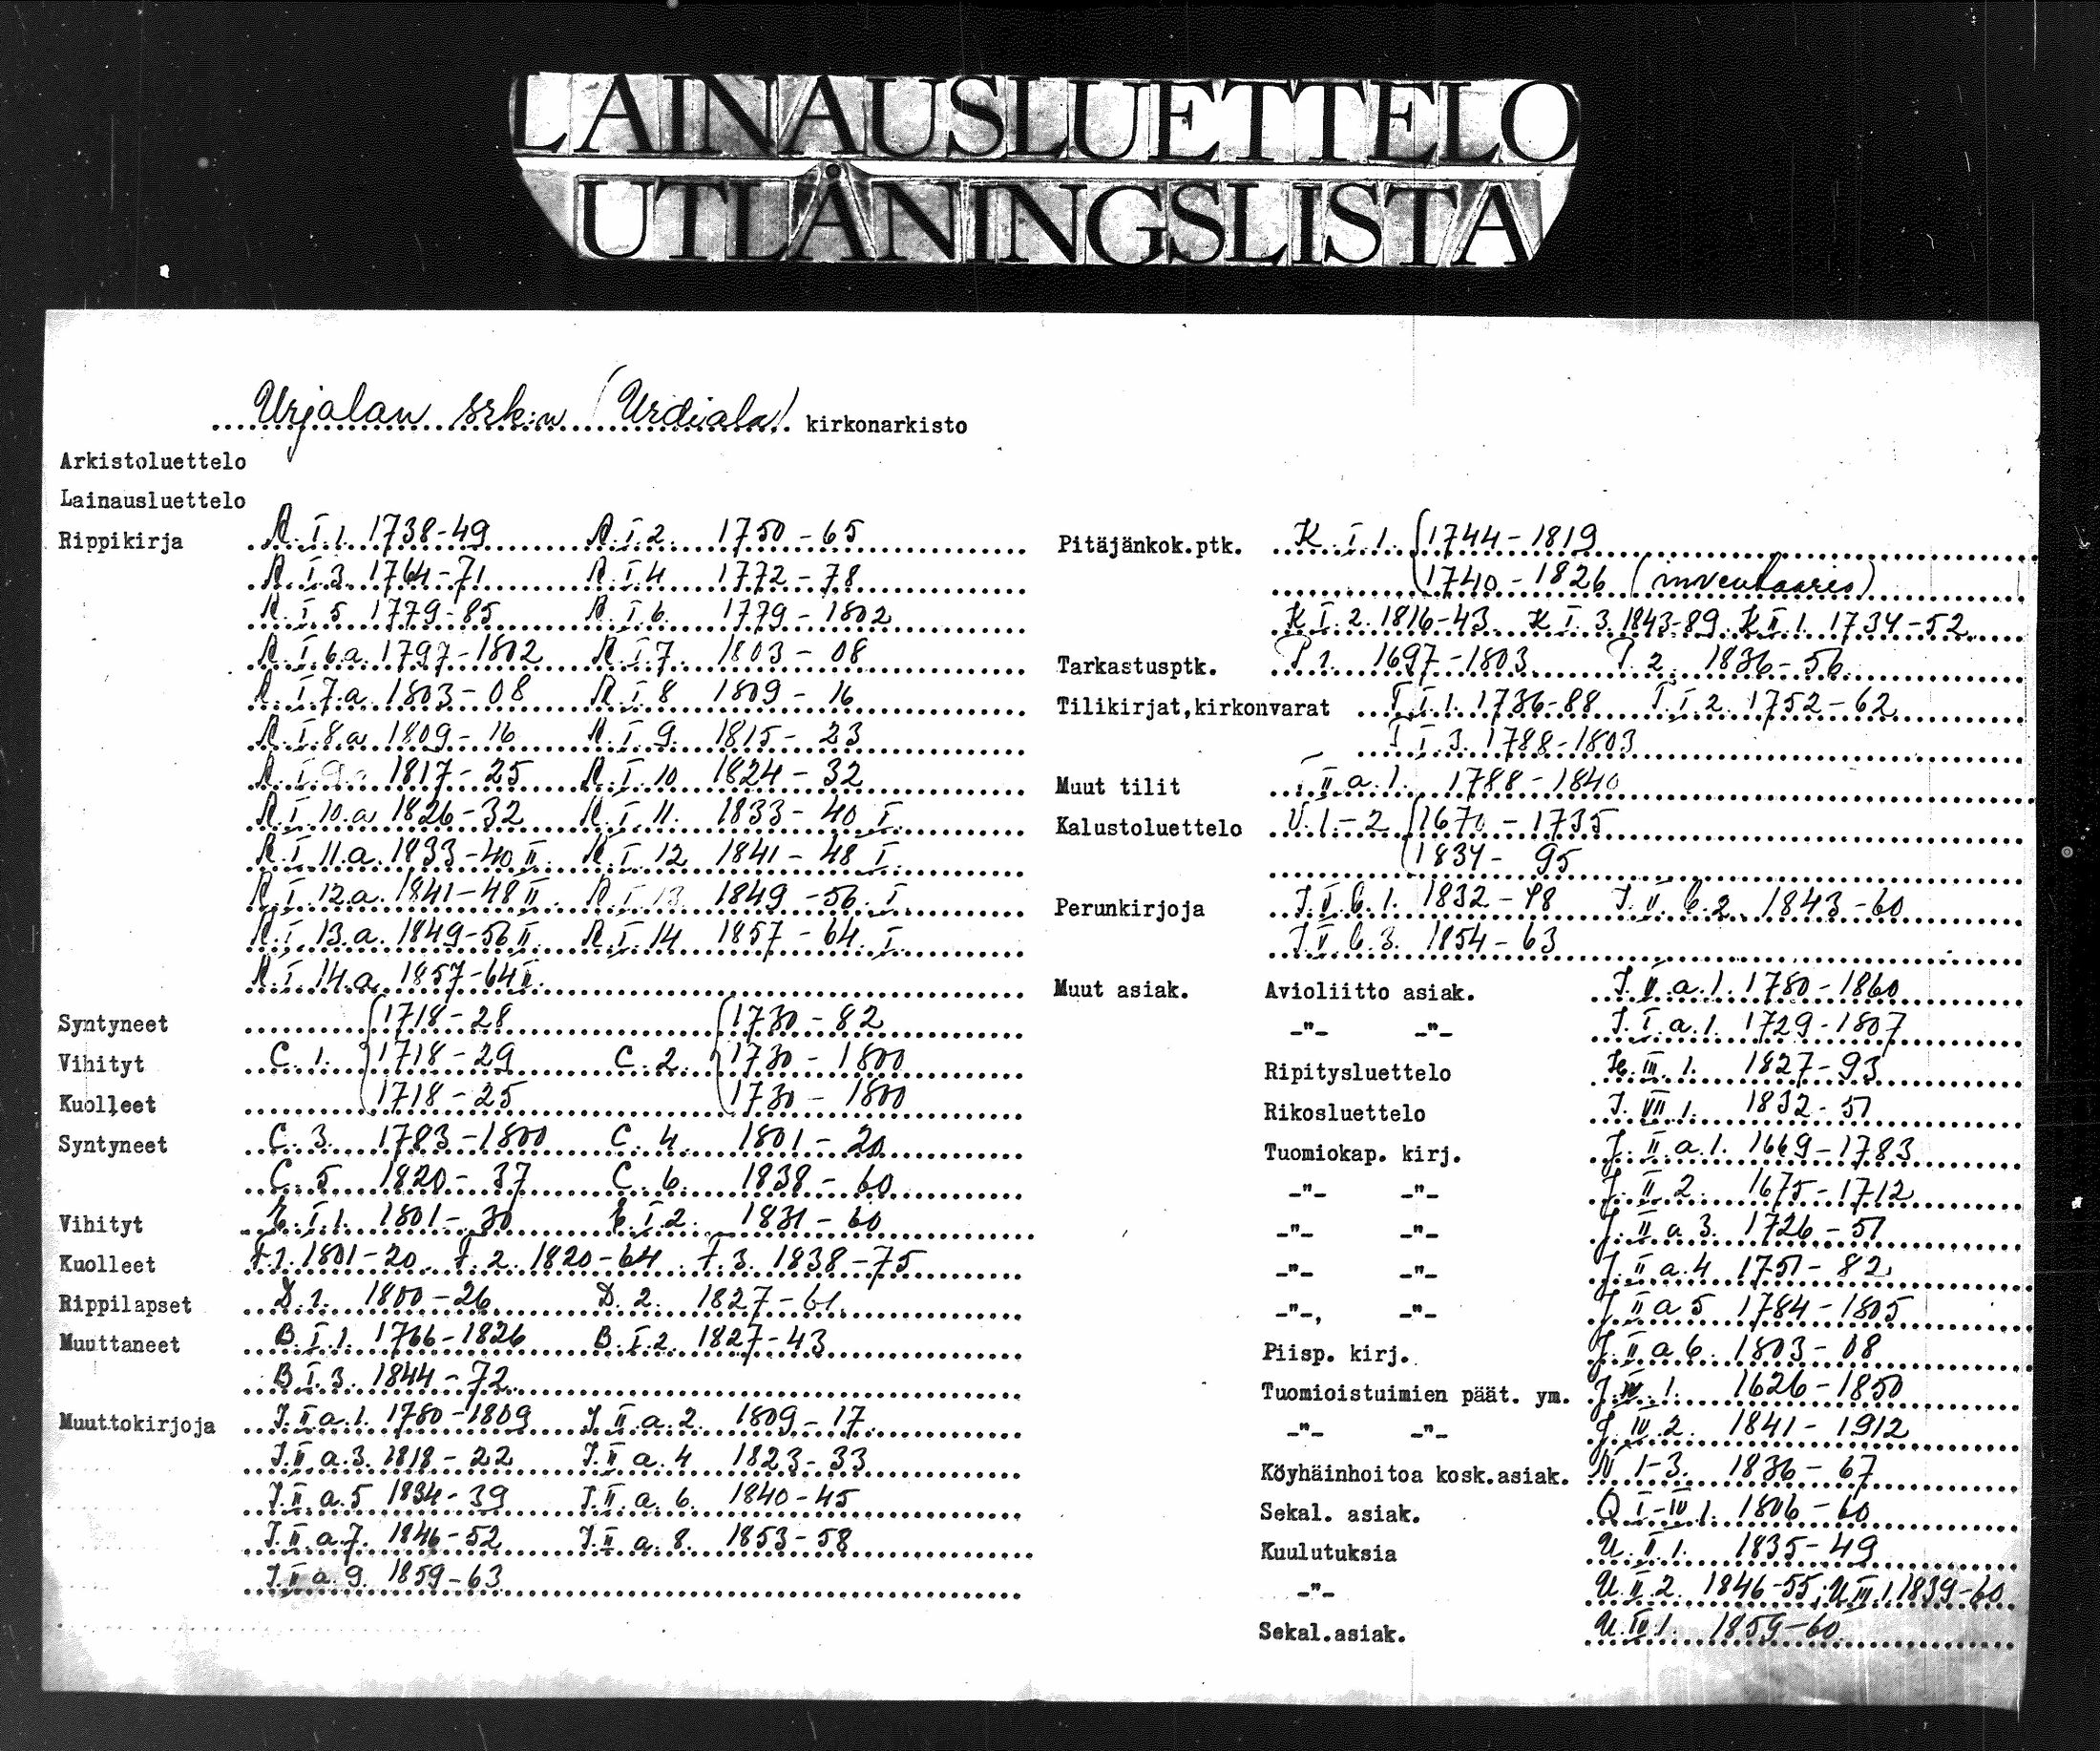 LAINAUSLUETTELO
UTLÅNINGSLISTA
Urjalan srk:n (Urdiala) kirkonarkisto
Arkistoluettelo
Lainausluettelo
Rippikirja R.I.1. 1738-49 R.I.2. 1750-65
R.I.3. 1764-71 R.I.4 1772-78
R.I.5 1779-85 R.I.6. 1779-1802
R.I.6.a. 1797-1802 R.I.7. 1803-08
R.I.7.a. 1803-08 R.I.8 1809-16
R.I.8a 1809-16 R.I.9. 1815-23
R.I.9.a 1817-25 R.I.10 1824-32
R.I.10.a 1826-32 R.I.11. 1833-40 I.
R.I.11.a. 1833-40 II. R.I.12 1841-48 I.
R.I.12.a. 1841-48 II. R.I.13. 1849-56. I.
R.I.13.a. 1849-56 II. R.I.14 1857-64. I.
R.I.14.a. 1857-64 II.
Syntyneet 1718-28 1730-82
Vihityt C.1. 1718-29 C.2. 1730-1800
Kuolleet 1718-25 1730-1800
Syntyneet C.3. 1783-1800 C.4. 1801-20
C.5 1820-37 C.6. 1838-60
Vihityt E.I.1. 1801-30 E.I.2. 1831-60
Kuolleet F.1. 1801-20. F.2. 1820-64 F.3. 1838-75
Rippilapset D.1. 1800-26 D.2. 1827-61.
Muuttaneet B.I.1. 1766-1826 B.I.2. 1827-43
B.I.3. 1844-72
Muuttokirjoja J.II.a.1. 1780-1809 J.II.a.2. 1809-17.
J.II.a.3. 1818-22 J.II.a.4 1823-33
J.II.a.5 1834-39 J.II.a.6. 1840-45
J.II.a.7. 1846-52 J.II.a.8. 1853-58
J.II.a.9. 1859-63
Pitäjänkok.ptk. K.I.1. 1744-1819
1740-1826 (inventaario)
K.I.2. 1816-43 K.I.3. 1843-89. K.II.1. 1734-52
Tarkastusptk. P.1. 1697-1803 P.2. 1836-56.
Tilikirjat,kirkonvarat T.I.1. 1736-88 T.I.2. 1752-62
T.I.3. 1788-1803
Muut tilit II.a.1. 1788-1840
Kalustoluettelo U.1.-2 1670-1735
1834-95
Perunkirjoja J.V.b.1. 1832-48 J.V.b.2. 1843-60
J.V.b.3. 1854-63
Muut asiak. Avioliitto asiak. J.V.a.1. 1780-1860
-"- -"- J.I.a.1. 1729-1807
Ripitysluettelo III.1. 1827-93
Rikosluettelo J.VII.1. 1832-51
Tuomiokap. kirj. J.II.a.1. 1669-1783
-"- -"- J.II.2. 1675-1712
-"- -"- J.II.a.3. 1726-51
-"- -"- J.II.a.4 1751-82
-"-, -"- J.II a 5 1784-1805
Piisp. kirj. J.II a 6. 1803-08
Tuomioistuimien päät. ym. J.IV.1. 1626-1850
-"- -"- J.IV.2. 1841-1912
Köyhäinhoitoa kosk.asiak. N 1-3. 1836-67
Sekal. asiak. Q I-IV 1. 1806-60
Kuulutuksia U.II.1. 1835-49
-"- U.II.2. 1846-55; U.III.1. 1839-60
Sekal.asiak. U.IV.1. 1859-60